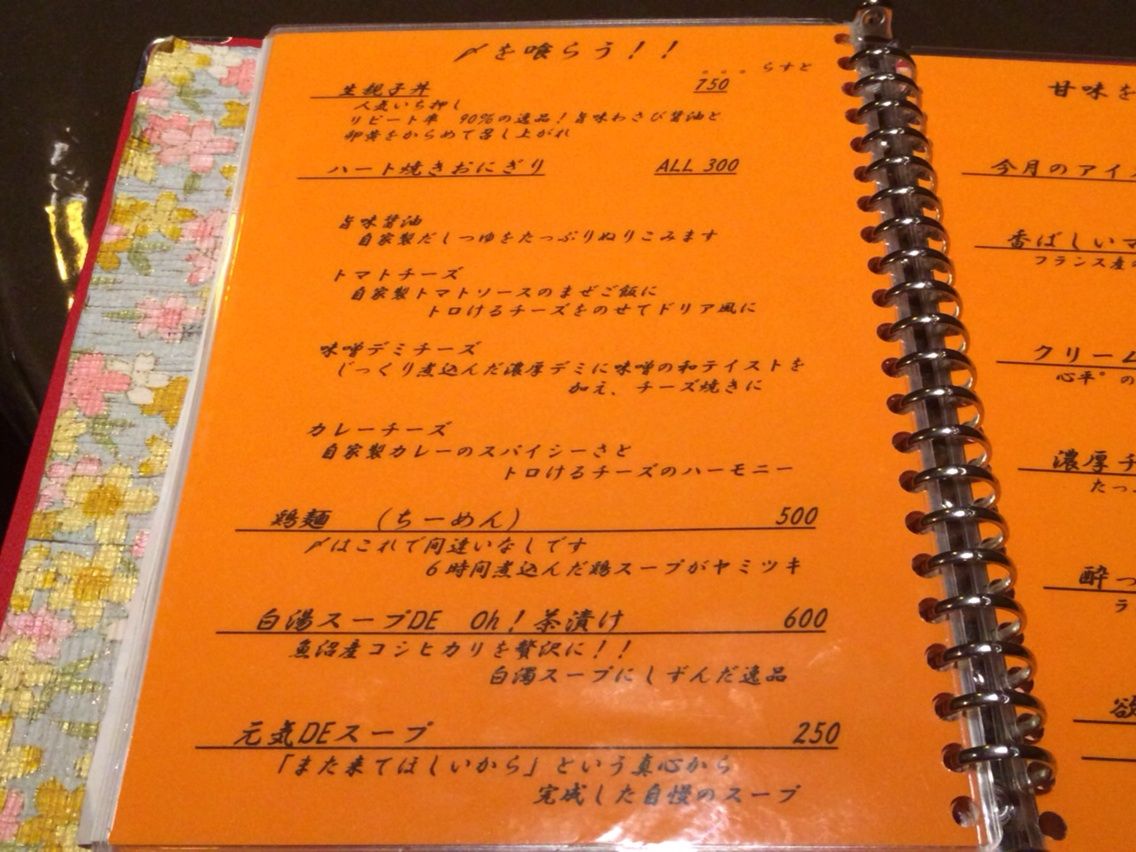 〆を喰らう！！
。。。らすと
生親子丼 750
人気いち押し
リピート率 90%の逸品！旨味わさび醤油と
卵黄をからめて召し上がれ
ハート焼きおにぎり ALL 300
旨味醤油
自家製だしつゆをたっぷりぬりこみます
トマトチーズ
自家製トマトソースのまぜご飯に
トロけるチーズをのせてドリア風に
味噌デミチーズ
じっくり煮込んだ濃厚デミに味噌の和テイストを
加え、チーズ焼きに
カレーチーズ
自家製カレーのスパイシーさと
トロけるチーズのハーモニー
鶏麺 （ちーめん） 500
〆はこれで間違いなしです
6時間煮込んだ鶏スープがヤミツキ
白湯スープDE Oh！茶漬け 600
魚沼産コシヒカリを贅沢に！！
白濁スープにしずんだ逸品
元気DEスープ 250
「また来てほしいから」という真心から
完成した自慢のスープ
甘味を
今月のアイス
香ばしいマ
フランス産の
クリーム
心平°の
濃厚チ
たっ
酔っ
ラ
欲